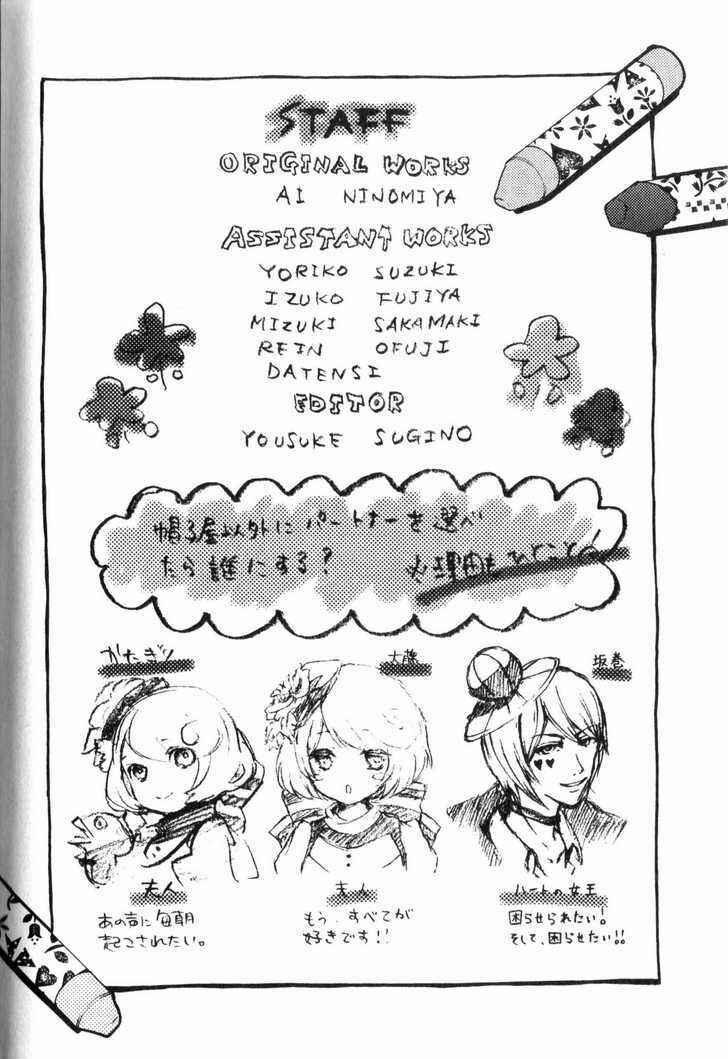 STAFF
ORIGINAL WORKS
AI NINOMIYA
ASSISTANT WORKS
YORIKO SUZUKI
IZUKO FUJIYA
MIZUKI SAKAMAKI
REIN OFUJI
DATENSI
EDITOR
YOUSUKE SUGINO
帽子屋以外にパートナーを選べ
たら誰にする? 理由もひとこと
かたぎり
大藤
坂巻
夫人
夫人
ハートの女王
あの声に毎朝
起こされたい。
もう、すべてが
好きです!!
困らせられたい!
そして、困らせたい!!